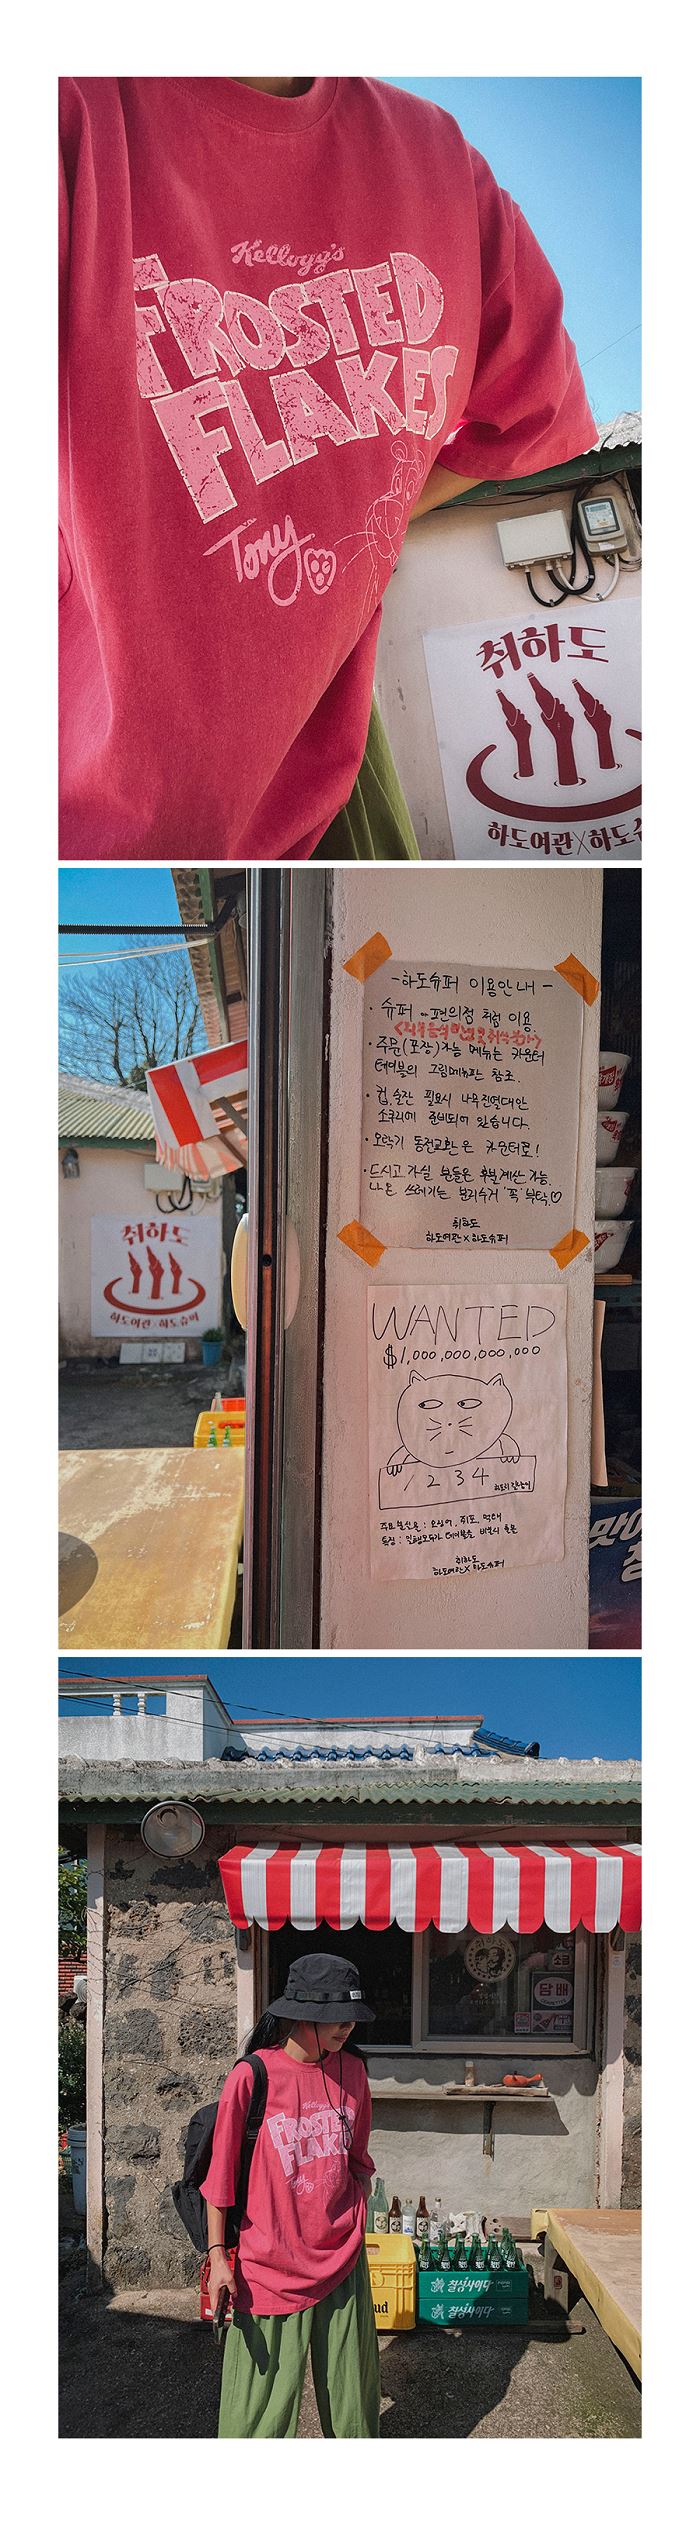 Kellogg's
FROSTED
FLAKES
Tony
취하도
하도여관X하도슈
-하도슈퍼 이용안내-
· 슈퍼 편의점 처럼 이용.
· 주문(포장)가능 메뉴는 카운터
테이블의 그림메뉴판 참조.
· 컵, 술잔 필요시 나무진열대안
소쿠리에 준비되어 있습니다.
· 오락기 동전교환은 카운터로!
· 드시고 가실 분들은 후불계산 가능.
나온 쓰레기는 분리수거 '꼭' 부탁♡
취하도
하도여관 X 하도슈퍼
취하도
하도여관X하도슈퍼
WANTED
$1,000,000,000,000
1 2 3 4
주요분실물 : 오징어, 쥐포, 먹태
취하도
하도여관 X 하도슈퍼
맛이
Kellogg's
FROSTED
FLAKE
Tony
소금
담배
ud
칠성사이다
칠성사이다